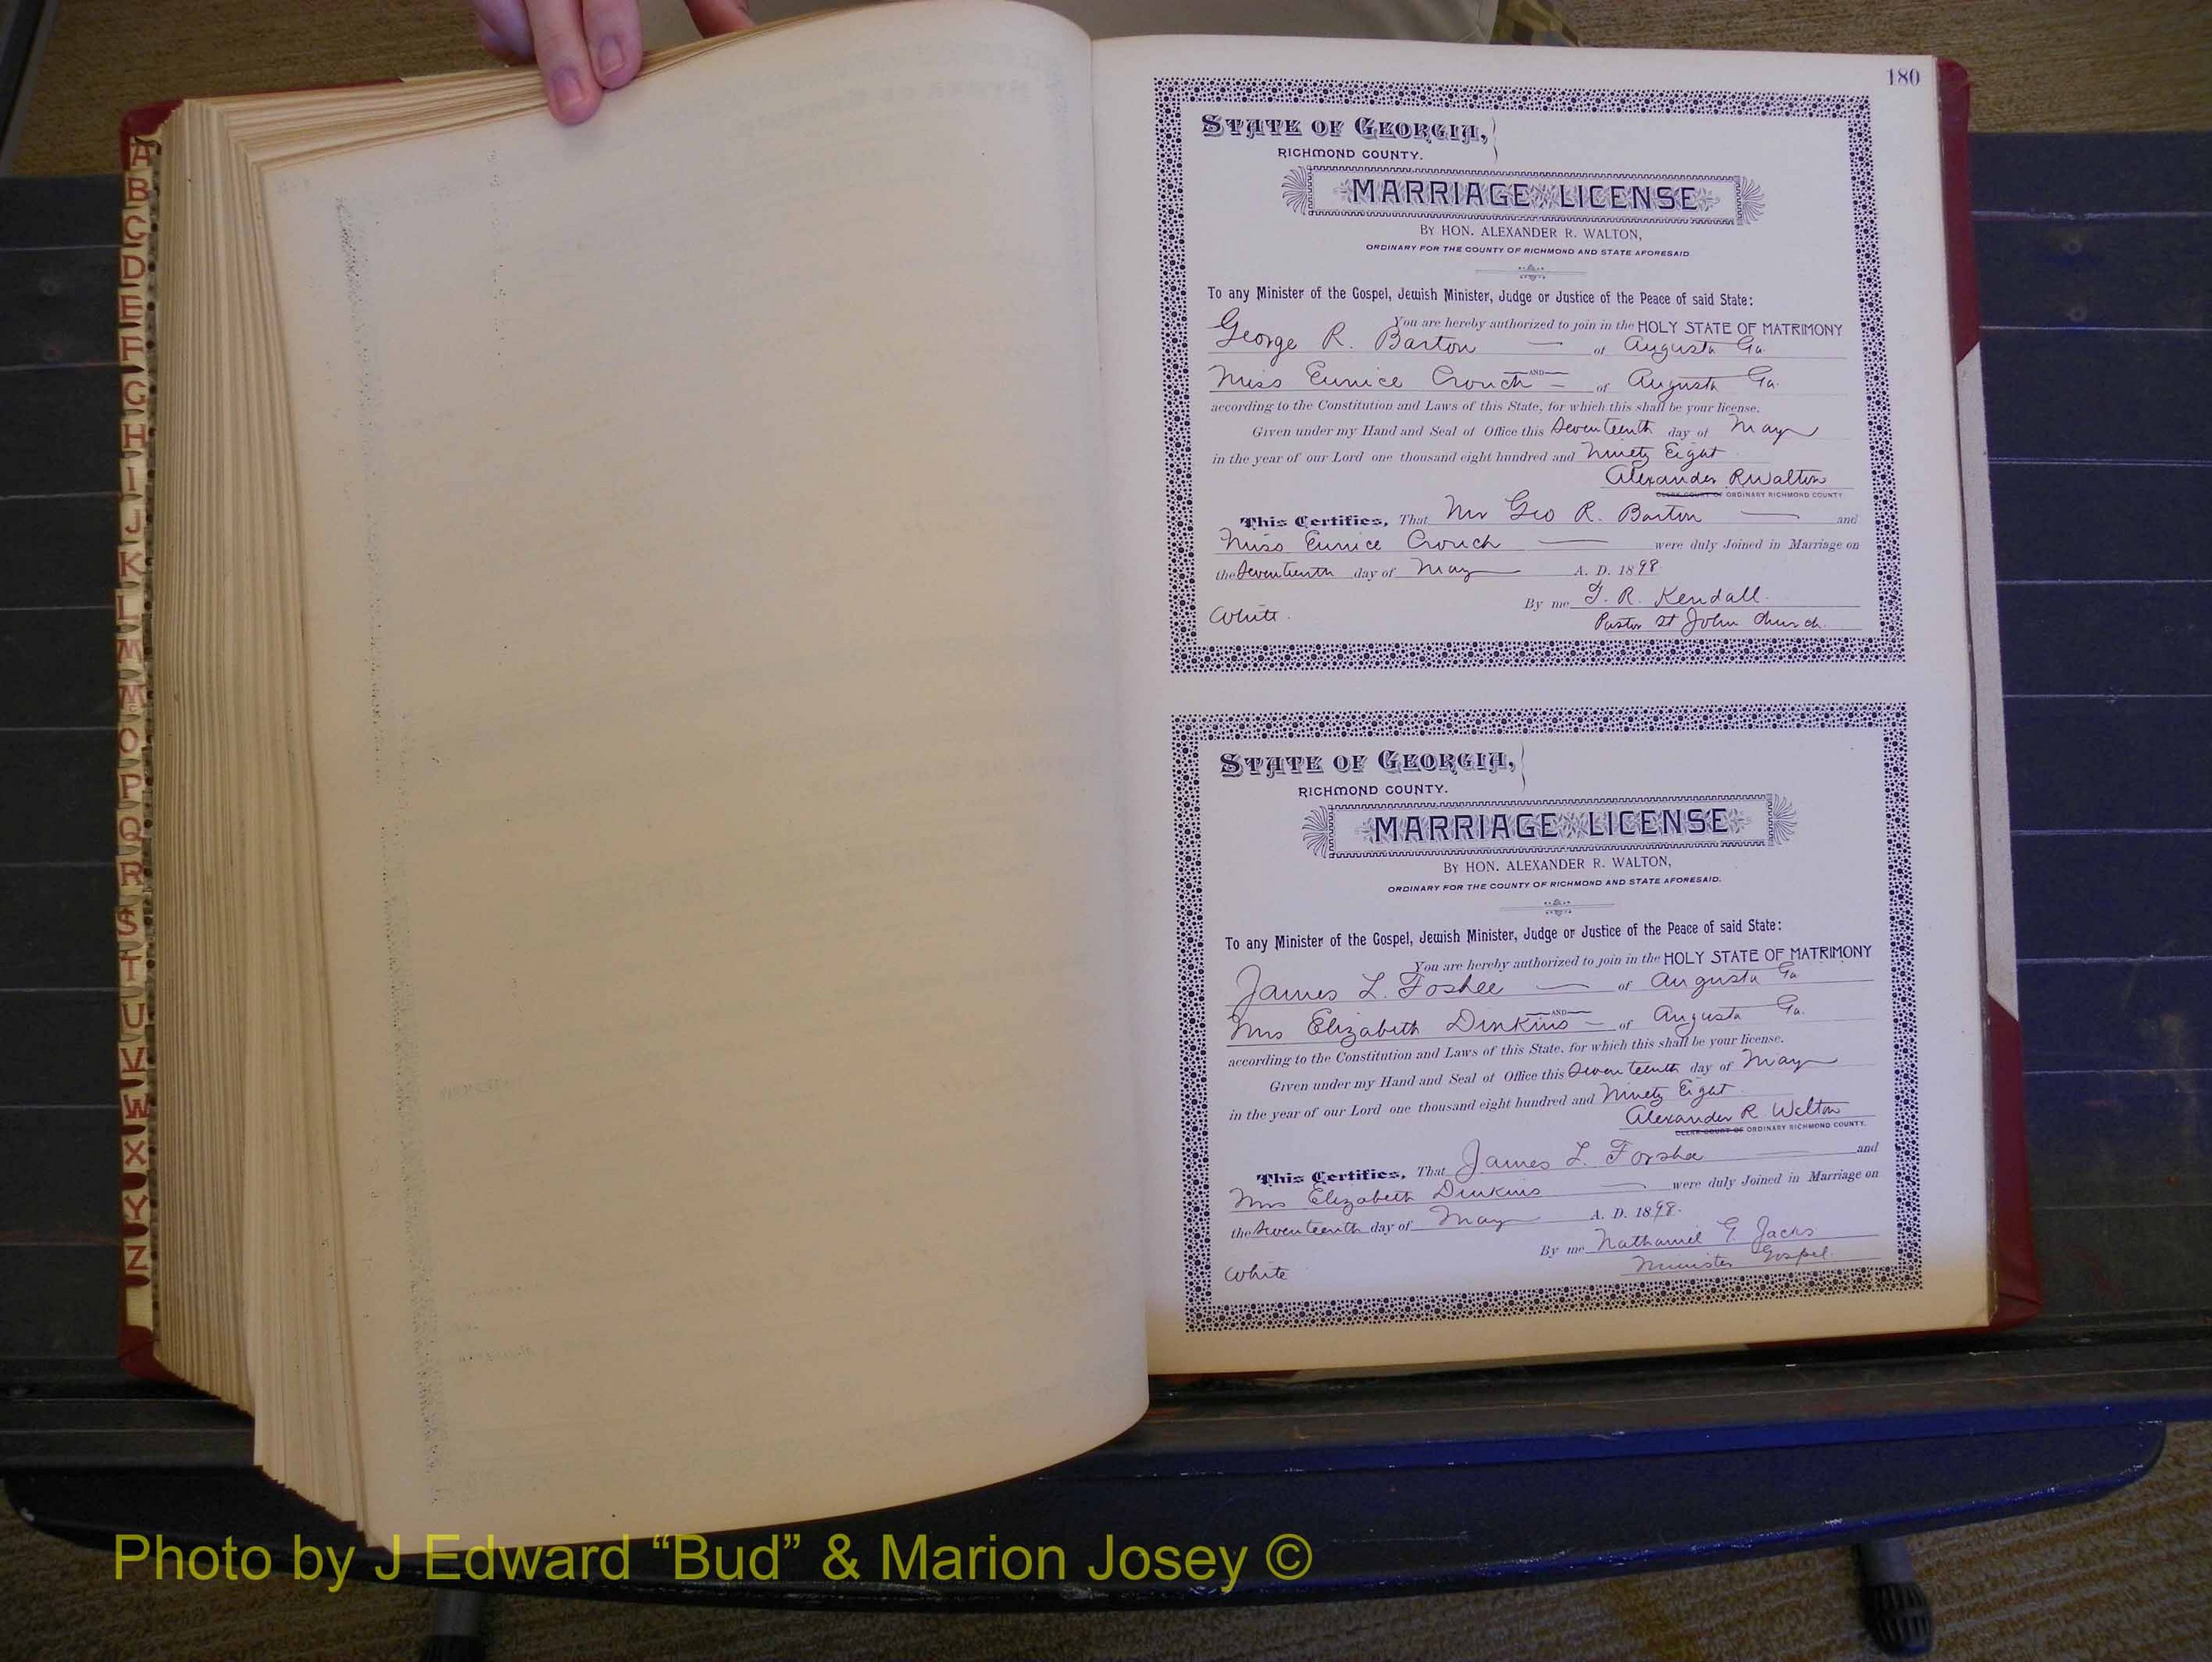 A
B
C
D
E
F
G
H
I
J
K
L
M
Mc
O
P
Q
R
S
T
U
V
W
X
Y
Z
180
STATE OF GEORGIA,
RICHMOND COUNTY.
MARRIAGE LICENSE
BY HON. ALEXANDER R. WALTON,
ORDINARY FOR THE COUNTY OF RICHMOND AND STATE AFORESAID
To any Minister of the Gospel, Jewish Minister, Judge or Justice of the Peace of said State:
You are hereby authorized to join in the HOLY STATE OF MATRIMONY
George R. Barton — of Augusta Ga.
AND
Miss Eunice Crouch — of Augusta Ga.
according to the Constitution and Laws of this State, for which this shall be your license.
Given under my Hand and Seal of Office this Seventeenth day of May
in the year of our Lord one thousand eight hundred and Ninety Eight
Alexander R Walton
CLERK COURT OF ORDINARY RICHMOND COUNTY
This Certifies, That Mr Geo R. Barton — and
Miss Eunice Crouch — were duly Joined in Marriage on
the Seventeenth day of May A. D. 1898
By me T. R. Kendall.
White. Pastor St John Church.
STATE OF GEORGIA,
RICHMOND COUNTY.
MARRIAGE LICENSE
BY HON. ALEXANDER R. WALTON,
ORDINARY FOR THE COUNTY OF RICHMOND AND STATE AFORESAID.
To any Minister of the Gospel, Jewish Minister, Judge or Justice of the Peace of said State:
You are hereby authorized to join in the HOLY STATE OF MATRIMONY
James L. Foshee — of Augusta Ga
AND
Mrs Elizabeth Dinkins — of Augusta Ga.
according to the Constitution and Laws of this State, for which this shall be your license.
Given under my Hand and Seal of Office this Seventeenth day of May
in the year of our Lord one thousand eight hundred and Ninety Eight
Alexander R. Walton
CLERK COURT OF ORDINARY RICHMOND COUNTY.
This Certifies, That James L. Forshee — and
Mrs Elizabeth Dinkins — were duly Joined in Marriage on
the Seventeenth day of May A. D. 1898.
By me Nathaniel G. Jacks
White Minister Gospel.
Photo by J Edward “Bud” & Marion Josey ©